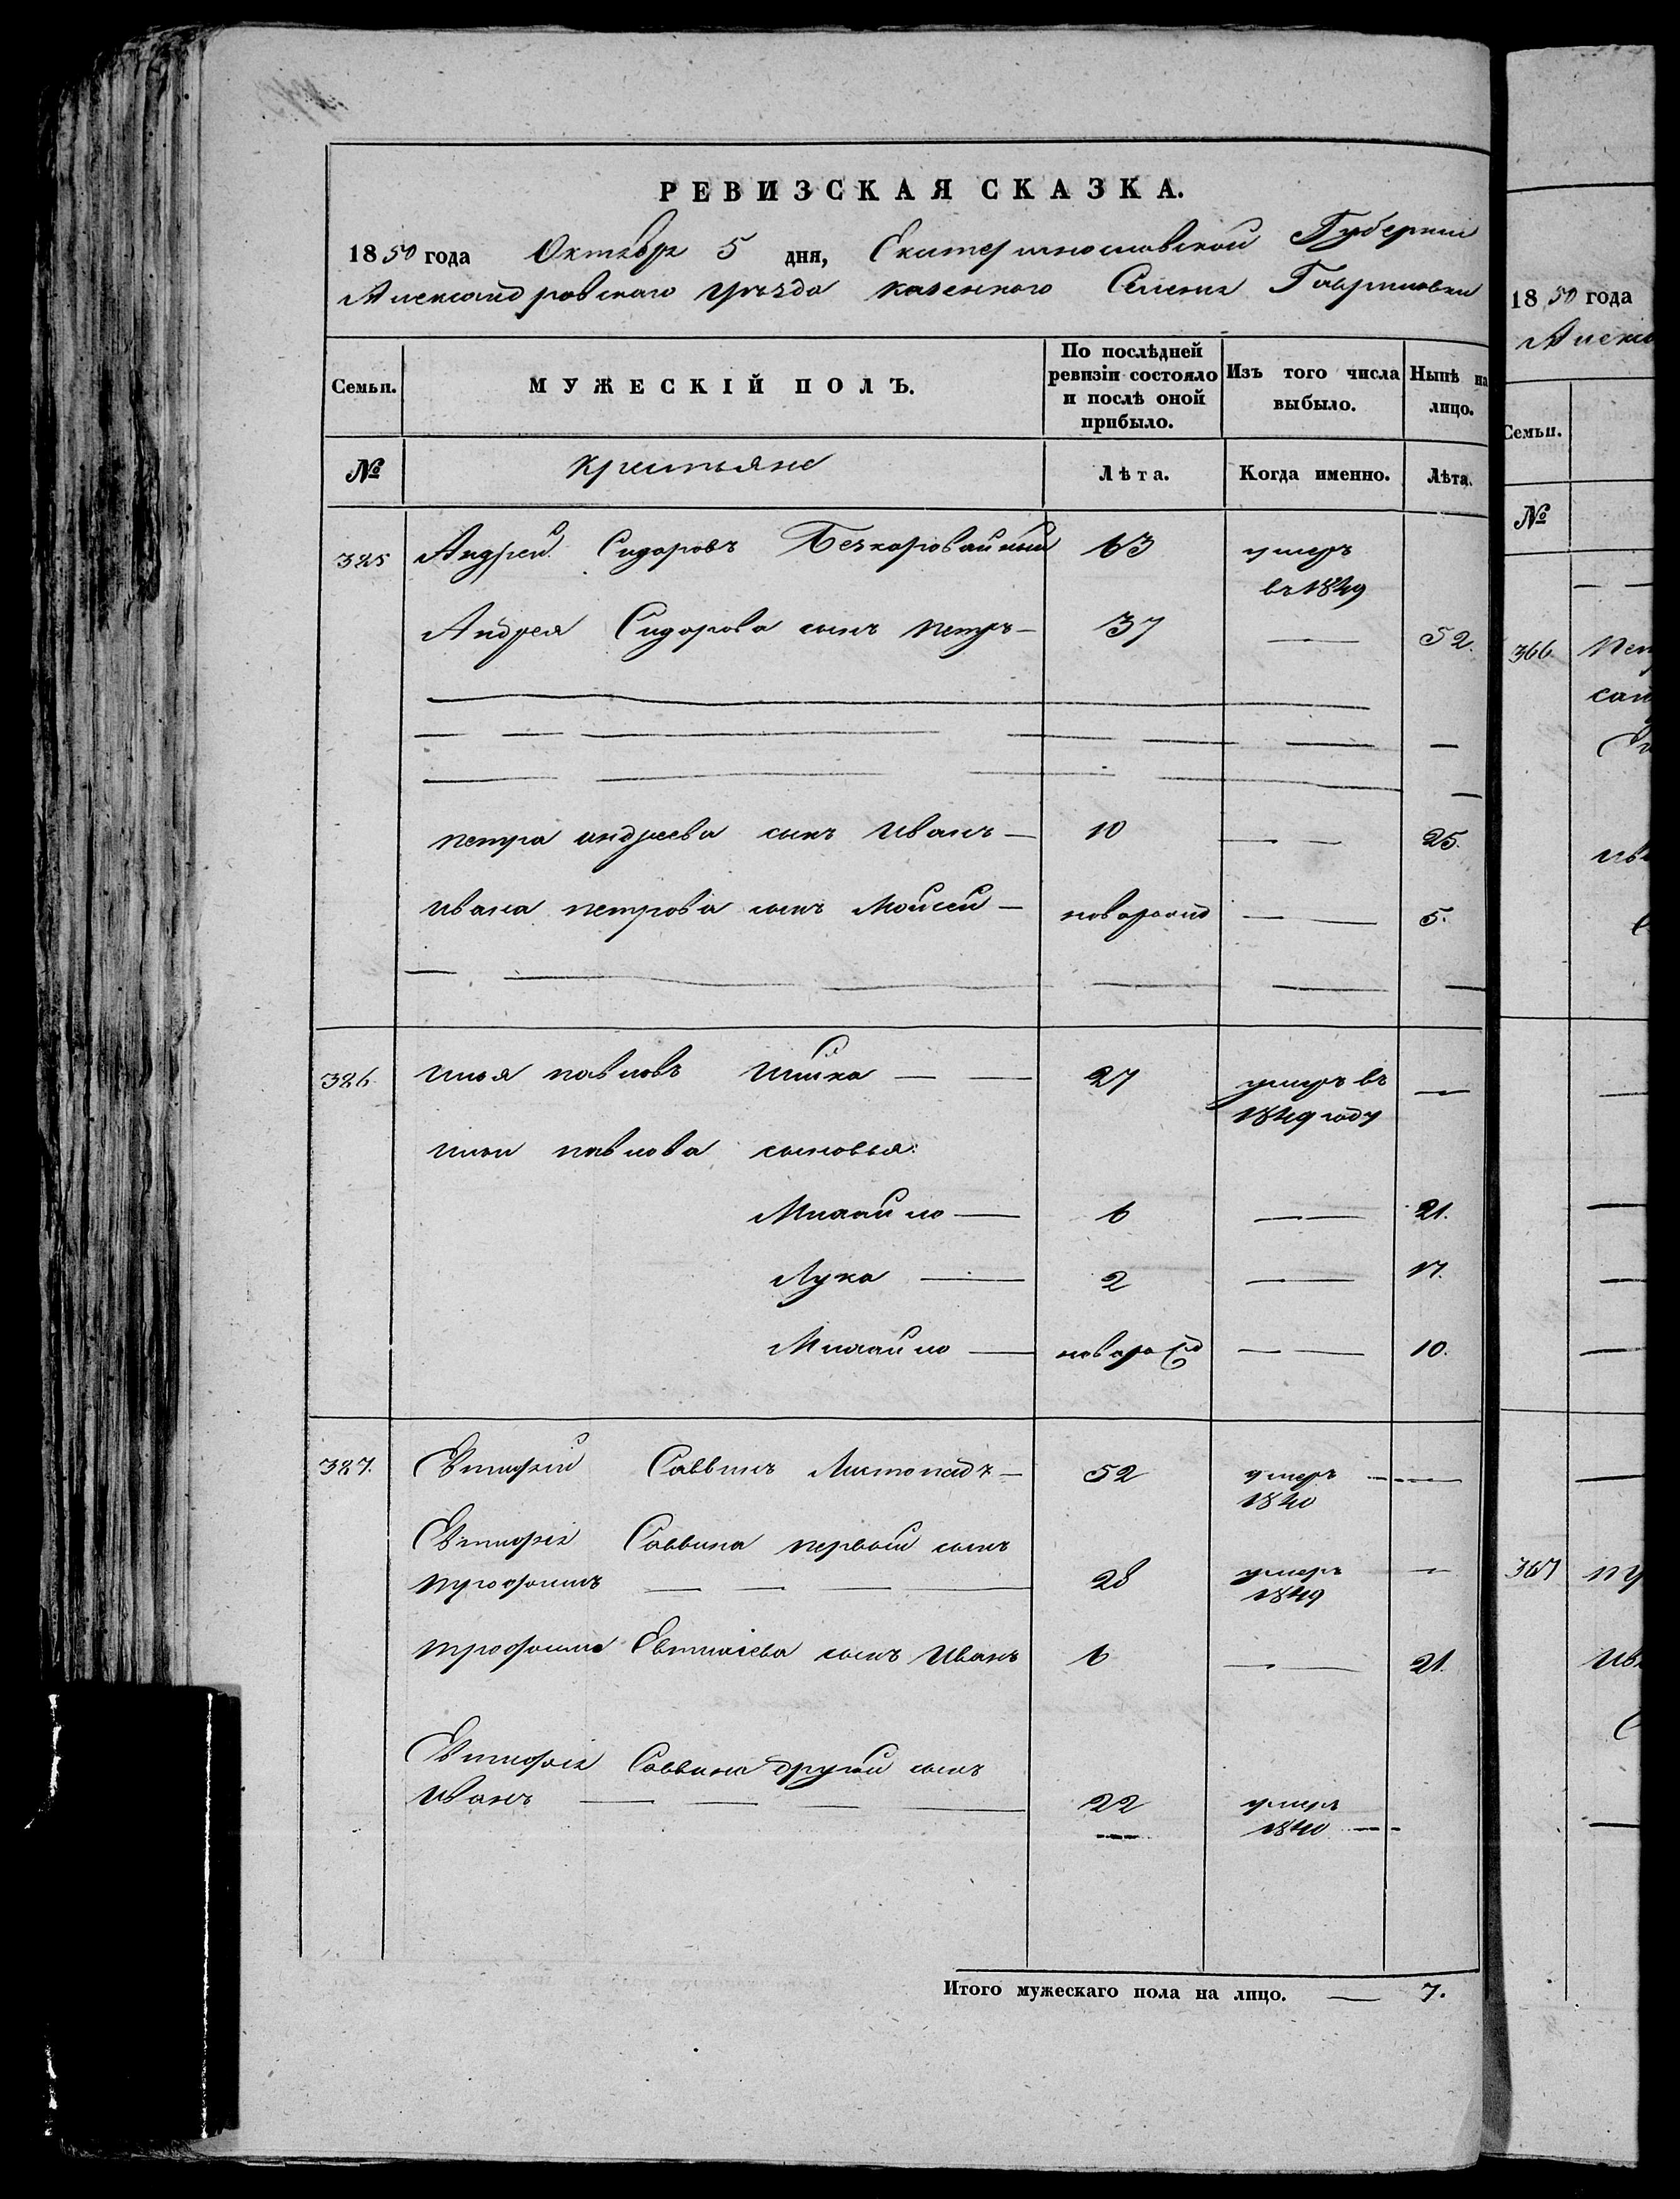 РЕВИЗСКАЯ СКАЗКА.
1850 года Октября 5 дня, Екатеринославской Губернии
Александровскаго уѣзда казеннаго Селения Гавриловки
Семьи. МУЖЕСКІЙ ПОЛЪ. По послѣдней ревизіи состояло и послѣ оной прибыло. Изъ того числа выбыло. Нынѣ на лицо.
№ крестьяне Лѣта. Когда именно. Лѣта.
385 Андрей Сидоровъ Безкоровайный 63 умеръ
въ 1849
Андрея Сидорова сынъ петръ — 37 — 52.
петра андреева сынъ Иванъ — 10 — 25.
Ивана петрова сынъ Моисей — новорожд — 5.
386. илья павловъ Шийка — 27 умеръ въ —
1849 году
ильи павлова сыновья:
Михайло — 6 — 21.
Лука — 2 — 17.
Михайло — новорож — 10.
387. Евтихій Саввинъ Листопадъ — 52 умеръ —
1840
Евтихія Саввина первый сынъ
трофимъ — 28 умеръ —
1849
трофима Евтихіева сынъ Иванъ 6 — 21.
Евтихія Саввина другой сынъ
Иванъ — 22 умеръ
1840 —
Итого мужескаго пола на лицо. — 7.
1850 года
Семьи.
№
366.
367